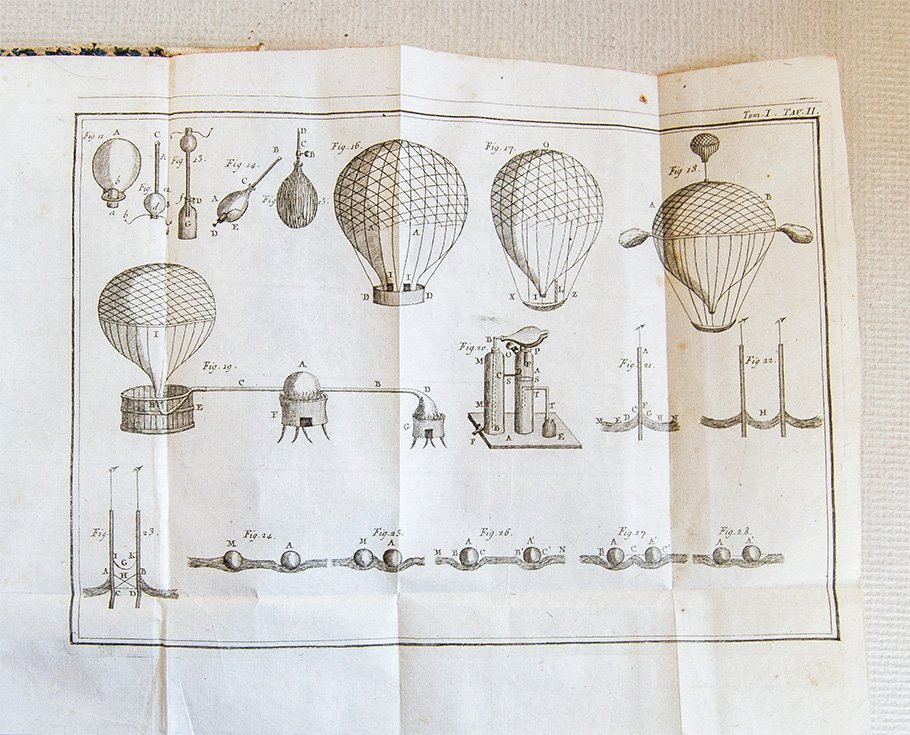 Tom. I. TAV. II.
Fig. 11.
A
b
a
C
A
Fig. 12.
d
b
f
Fig. 13.
D
G
Fig. 14.
B
C
A
D
E
D
C
B
Fig. 15.
Fig. 16.
A
A
I
I
D
D
Fig. 17.
O
L
X
I
Z
Fig. 18.
A
B
I
H
E
Fig. 19.
C
A.
B
D
F
G
Fig. 20.
B
D
M
O
P
C
F
A
S
S
T
M
T
B
P
A
E
A
Fig. 21.
C
F
M
E
D
G
H
N
Fig. 22.
H
Fig. 23.
I
K
G
A
H
B
C
D
Fig. 24.
M
A
Fig. 25.
M
A
Fig. 26.
M
B
A
C
B
A'
C'
N
Fig. 27.
B
A
C
A'
C
Fig. 28.
A
A'